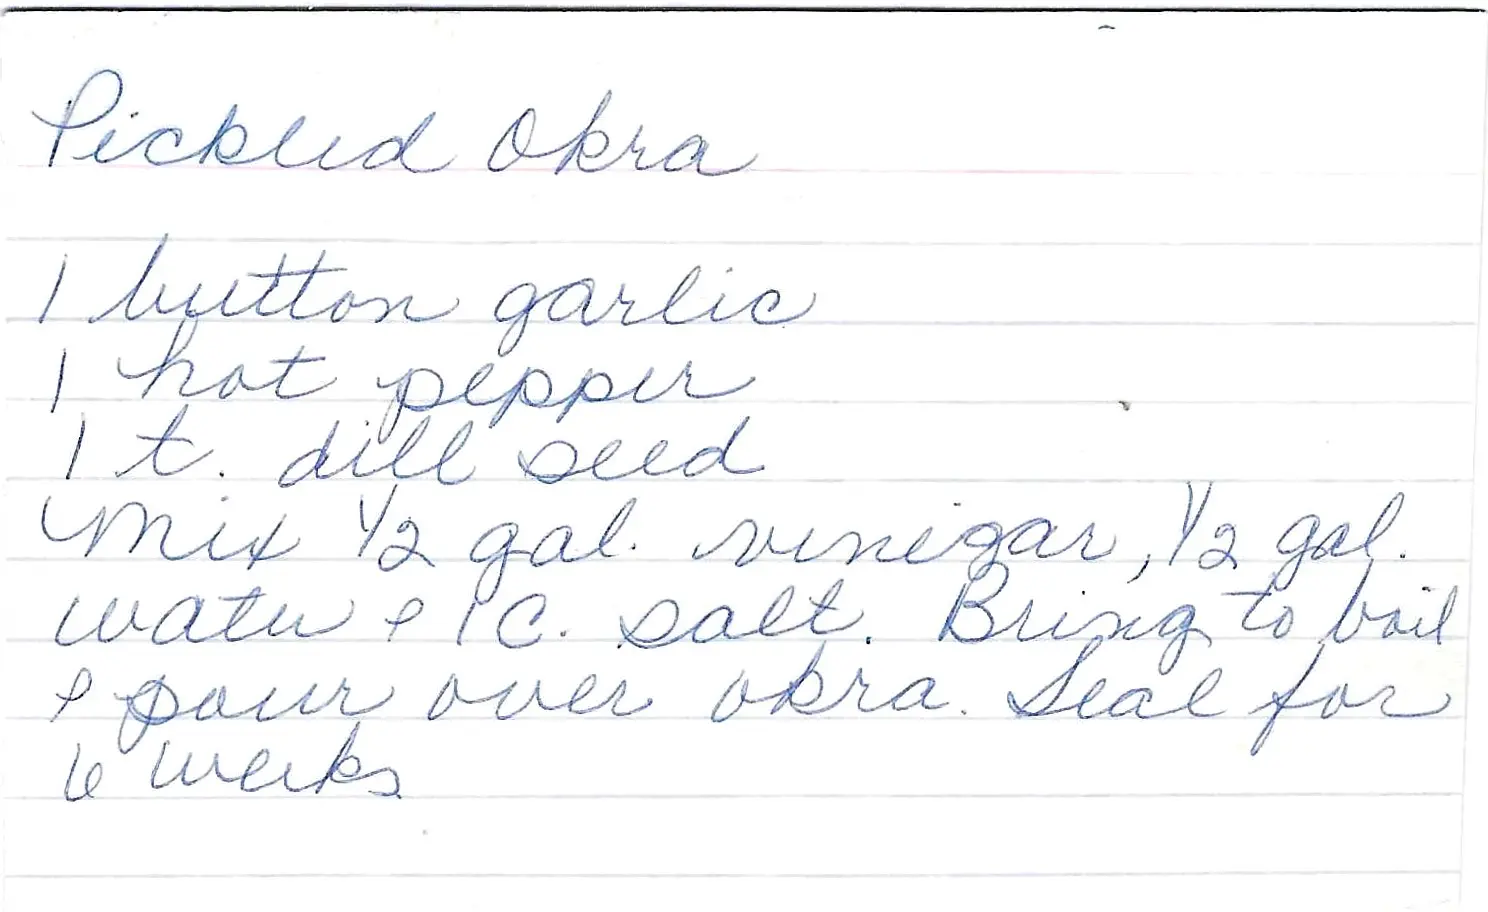 Pickled Okra
1 button garlic
1 hot pepper
1 t. dill seed
Mix 1/2 gal. vinegar, 1/2 gal.
water & 1 C. salt. Bring to boil
& pour over okra. Seal for
6 weeks